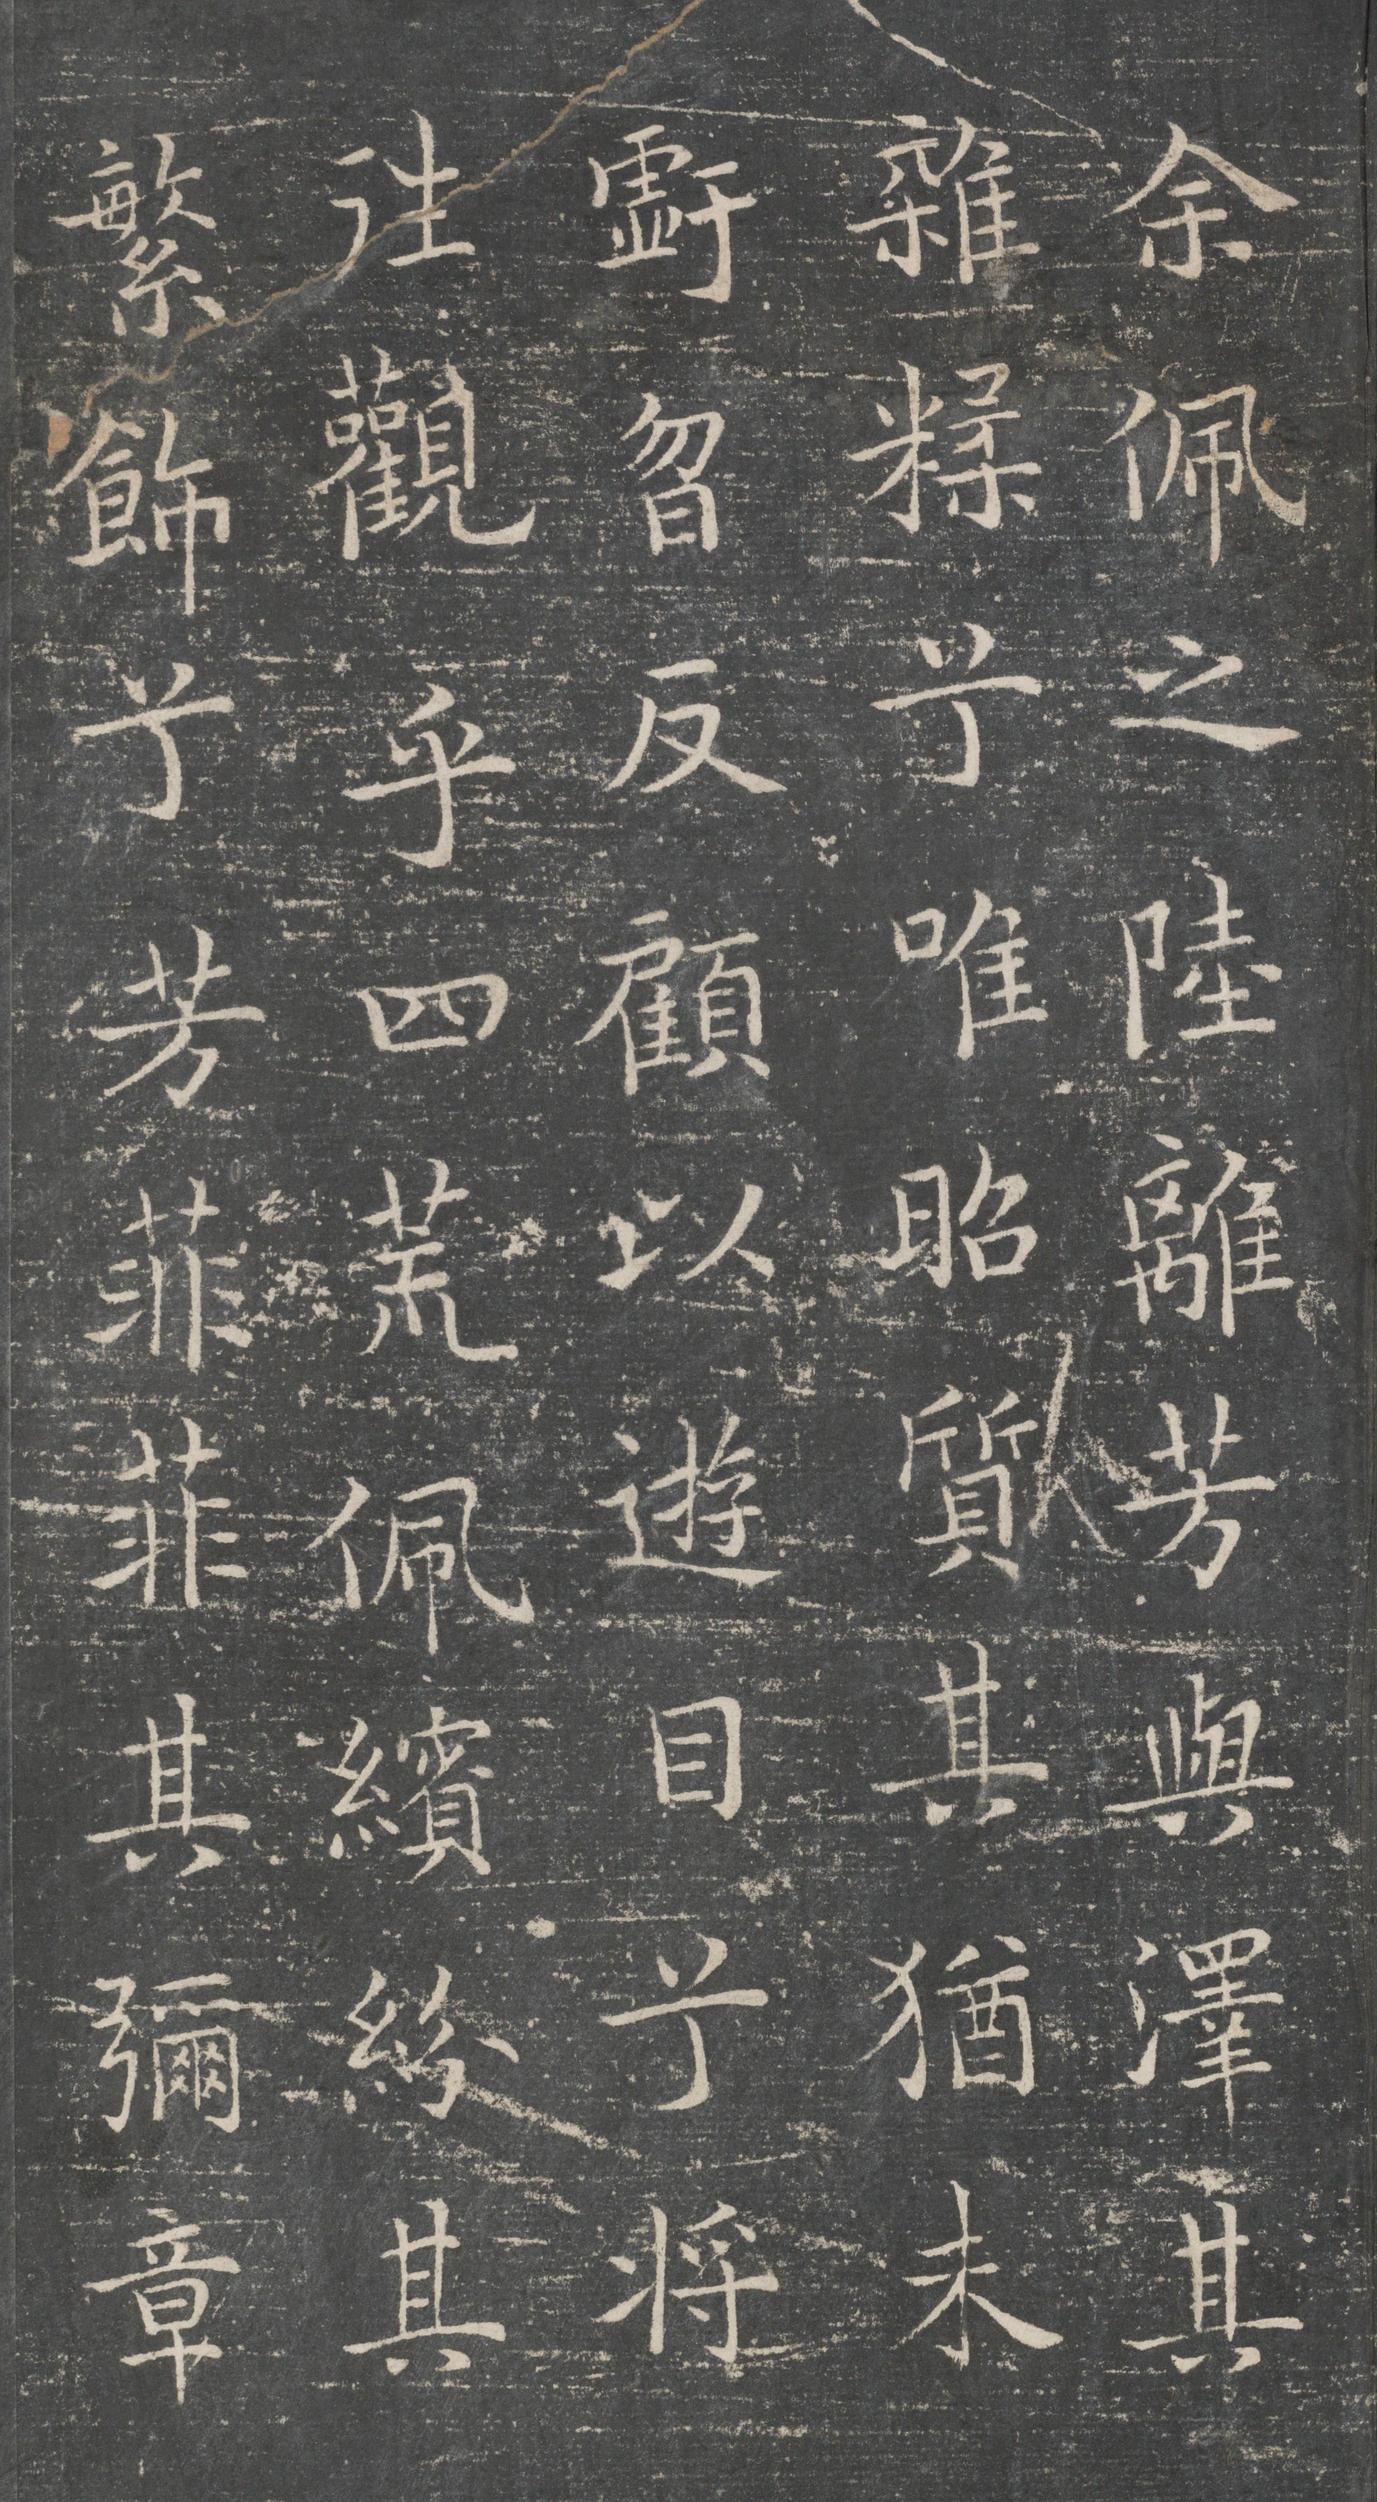 余佩之陸離芳與澤其
雜糅兮唯昭質其猶未
虧忽反顧以遊目兮将
往觀乎四荒佩繽紛其
繁飾兮芳菲菲其彌章